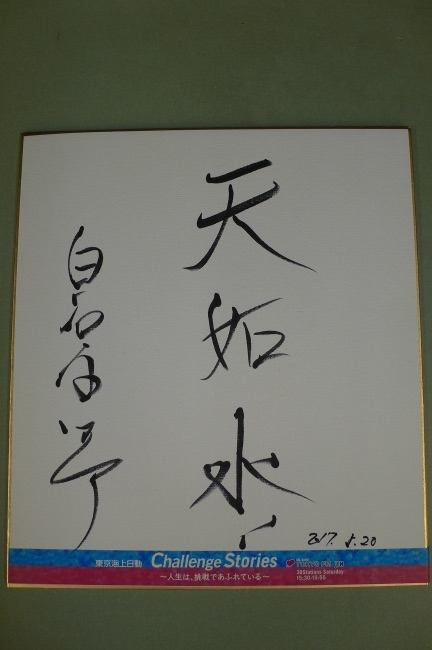 天如水
白石康次郎
2017. 5.20
東京海上日動 Challenge Stories
～人生は、挑戦であふれている～
TOKYO FM JFN
38Stations Saturday